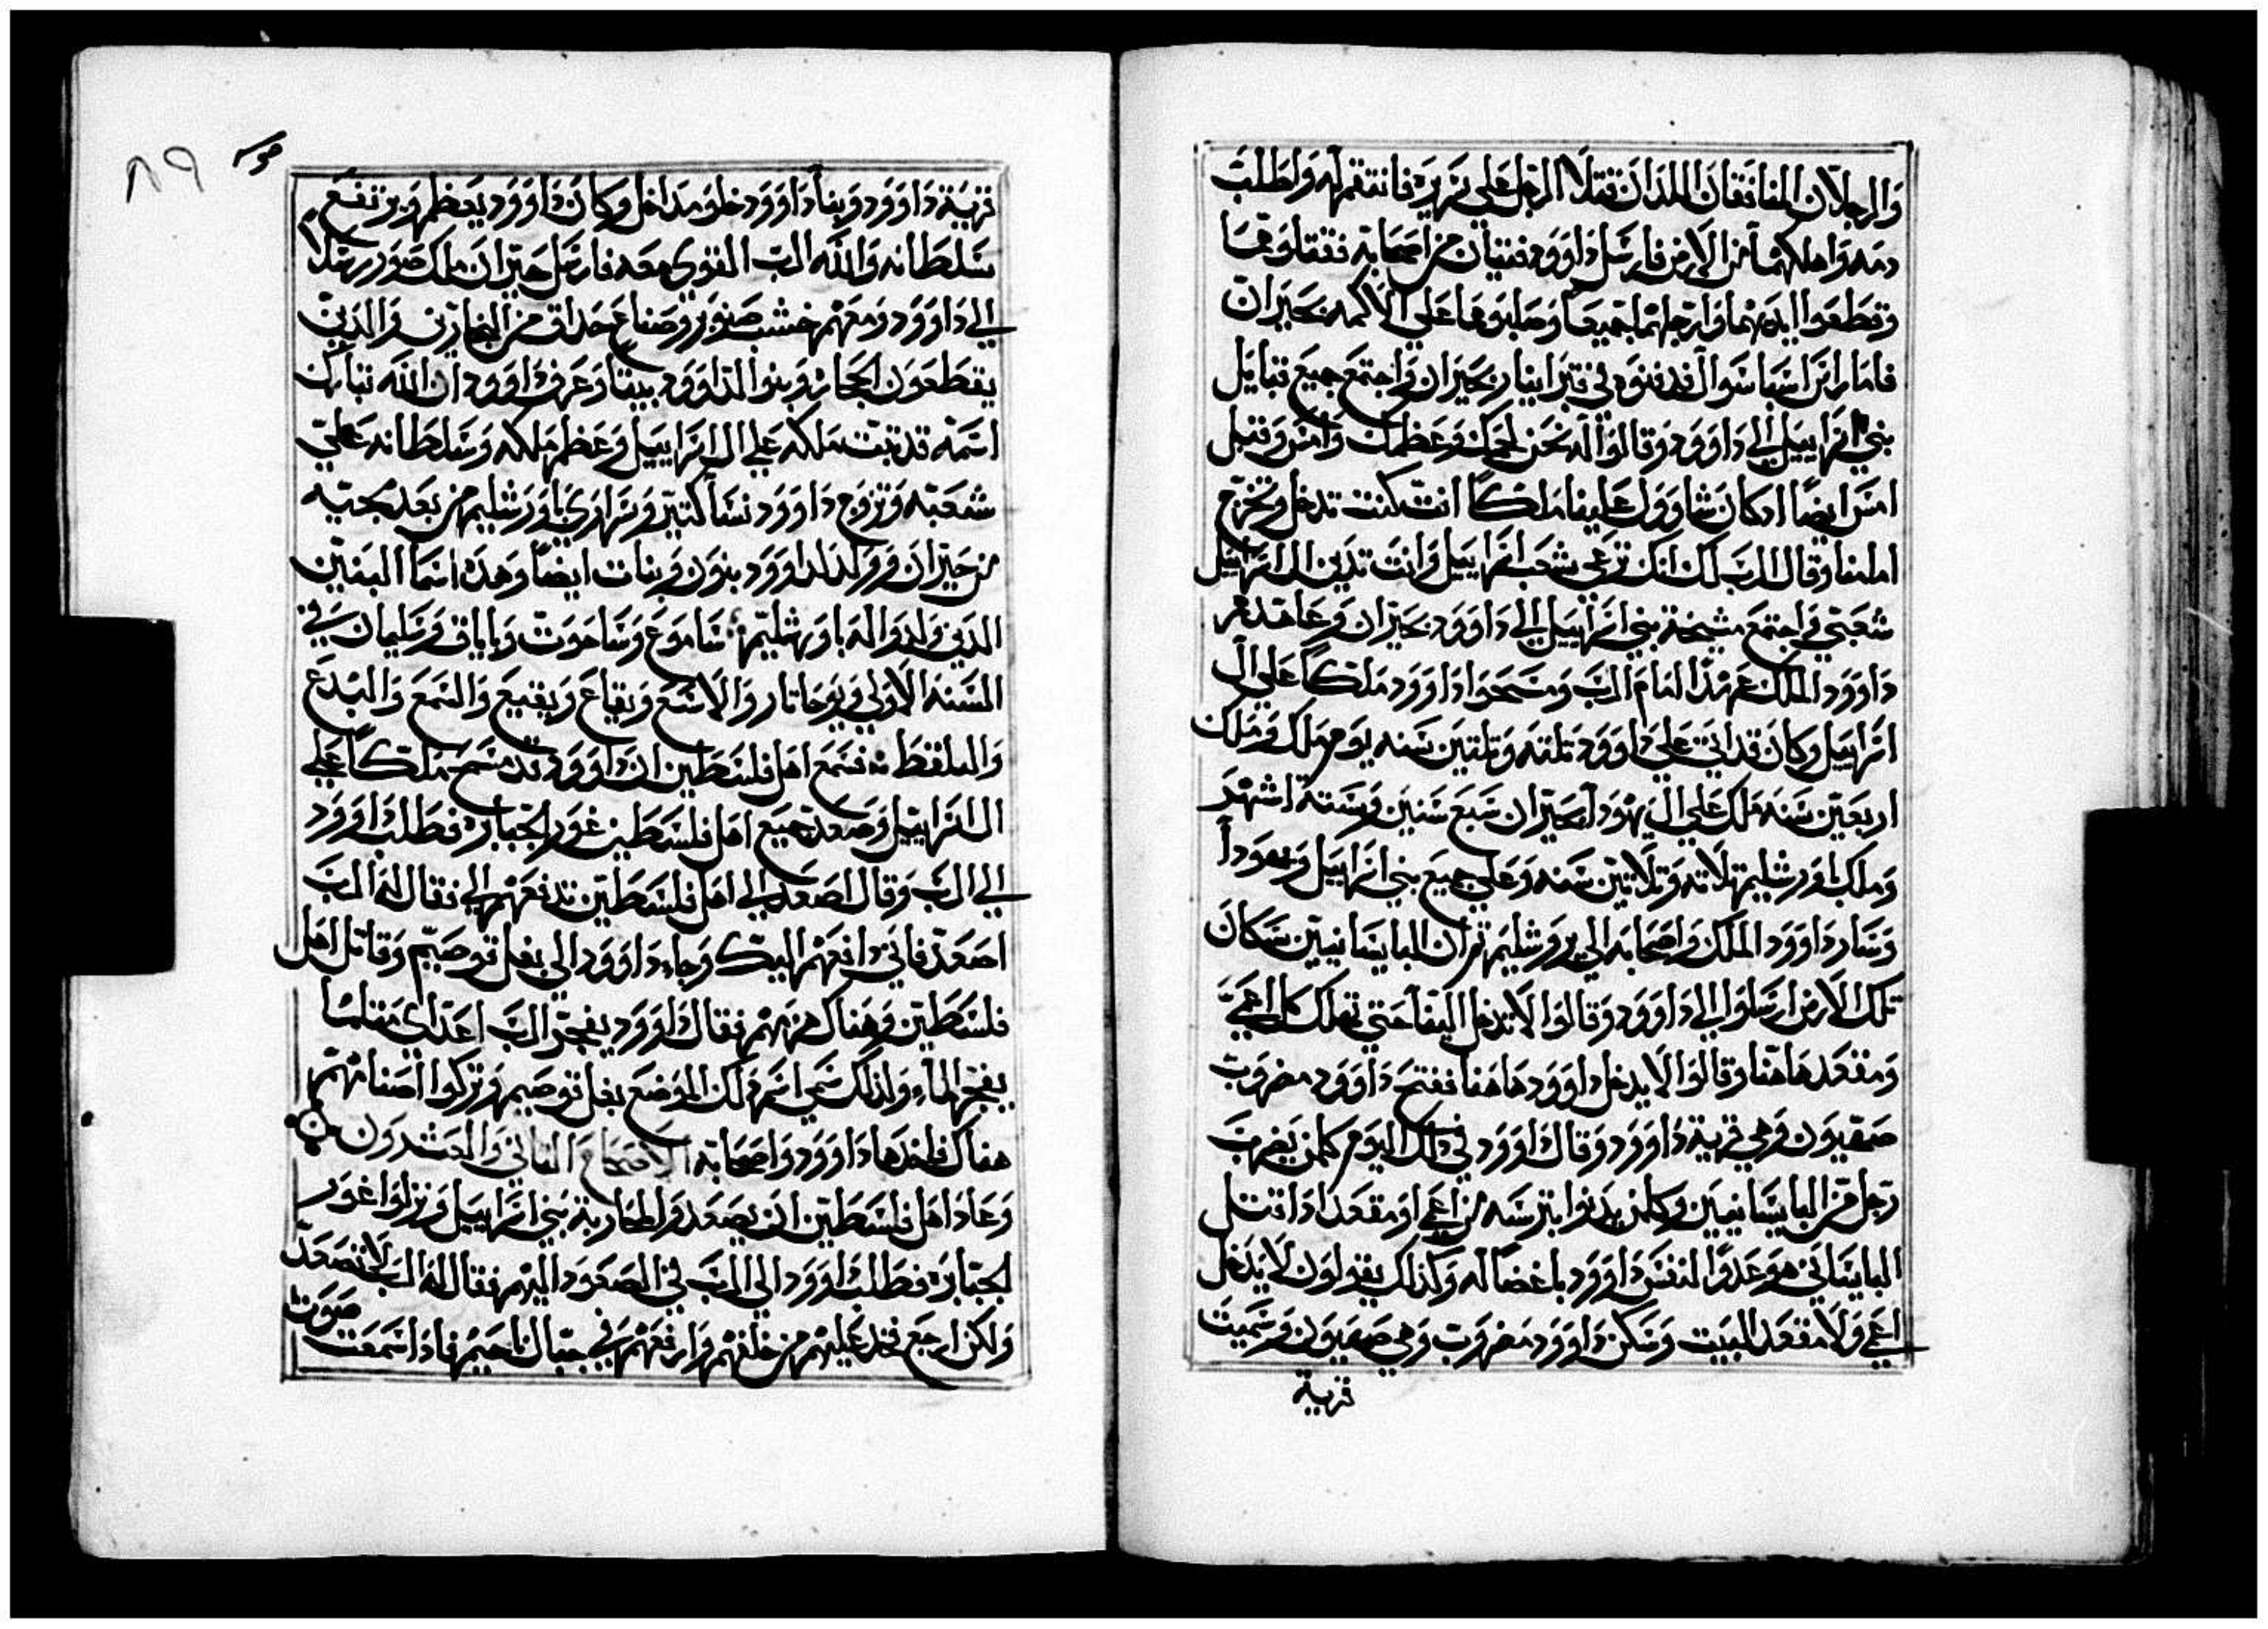 والرجلان المنافقان اللذان قتلا الرجل على سريره فانتقم له واطلب
دمه واهلكهما من الارض فارسل داوود فتيان من اصحابه فقتلوهما
وقطعوا ايديهما وارجلهما جميعا وصلبوهما على الاكمه بحبران
فاما راس اشباشوال فدفنوه في قبر ابينار بحبران واجتمع جميع قبايل
بني اسراييل الي داوود وقالوا له نحن لحمك وعظمك وامس وقبل
امس ايضا اد كان شاوول علينا ملكا انت كنت تدخل وتخرج
امامنا وقال الرب لك انك ترعى شعب اسراييل وانت تدين ال اسراييل
شعبي واجتمع مشيخة بني اسراييل الي داوود بحبران وعاهدهم
داوود الملك عهدا امام الرب ومسحوا داوود ملكا علي ال
اسراييل وكان قد اتي علي داوود تلته وتلتين سنه يوم ملك وملك
اربعين سنه ملك علي ال يهودا بحبران سبع سنين وستة اشهر
وملك باورشليم تلاته وتلاتين سنه وعلي جميع بني اسراييل ويهودا
وسار داوود الملك واصحابه الي يروشليم ثم ان اليابسانيين سكان
تلك الارض ارسلوا الي داوود وقالوا لا تدخل الينا حتي تهلك كل اعمي
ومقعد هاهنا وقالوا لا يدخل داوود هاهنا ففتح داوود مضروب
صهيون وهي قرية داوود وقال داوود في ذلك اليوم كلمن يضرب
رجل من اليابسانيين وكلمن يدنوا بترسه من اعمي او مقعد اذا قتل
اليابساني هو عدو لنفس داوود باغضا له وكذلك يقولون لا يدخل
اعمي ولا مقعد البيت وسكن داوود مضروب وهي صهيون وسميت
قرية
٨٩
قرية داوود وبنا داوود خلو مداخل وكان داوود يعظم ويرتفع
سلطانه والله الرب القوي معه فارسل حيران ملك صور رسلا
الي داوود ومعهم خشب صنوبر وصناع حداق من النجارين والدين
يقطعون الحجاره وبنوا لداوود بيتا وعرف داوود ان الله تبارك
اسمه قد تبت ملكه علي ال اسراييل وعظم ملكه وسلطانه علي
شعبه وتزوج داوود نسا كتير وسراري باورشليم من بعد مجيه
من حبران وولد لداوود بنون وبنات ايضا وهذه اسما البنين
الدين ولدوا له باورشليم شاموع وساموت وياياق وسليمان في
السنه الاولي ويوحاتار والاشع وتقاع ويقيع والنمع والبدع
واليلفظ فسمع اهل فلسطين ان داوود قد مسح ملكا علي
ال اسراييل وصعد جميع اهل فلسطين غور الجبابره فطلب داوود
الي الرب وقال اصعد الي اهل فلسطين تدفعهم الي فقال له الرب
اصعد فاني دافعهم اليك وجاء داوود الي بغل قوصيم وقاتل اهل
فلسطين وهناك هزمهم فقال داوود يفجر الرب اعداي مثلما
يفجر الماء ولذلك سمي اسم ذلك الموضع بغل قوصيم وتركوا اصنامهم
هناك فاخدها داوود واصحابه الاصحاح الثاني والعشرون
وعاد اهل فلسطين ان يصعدوا لمحاربة بني اسراييل ونزلوا غور
الجبابره فطلب داوود الي الرب في الصعود اليهم فقال له الرب لا تصعد
ولكن ارجع فخد عليهم من خلفهم وارفعهم في جبال ناحيم فاذا سمعت صوت